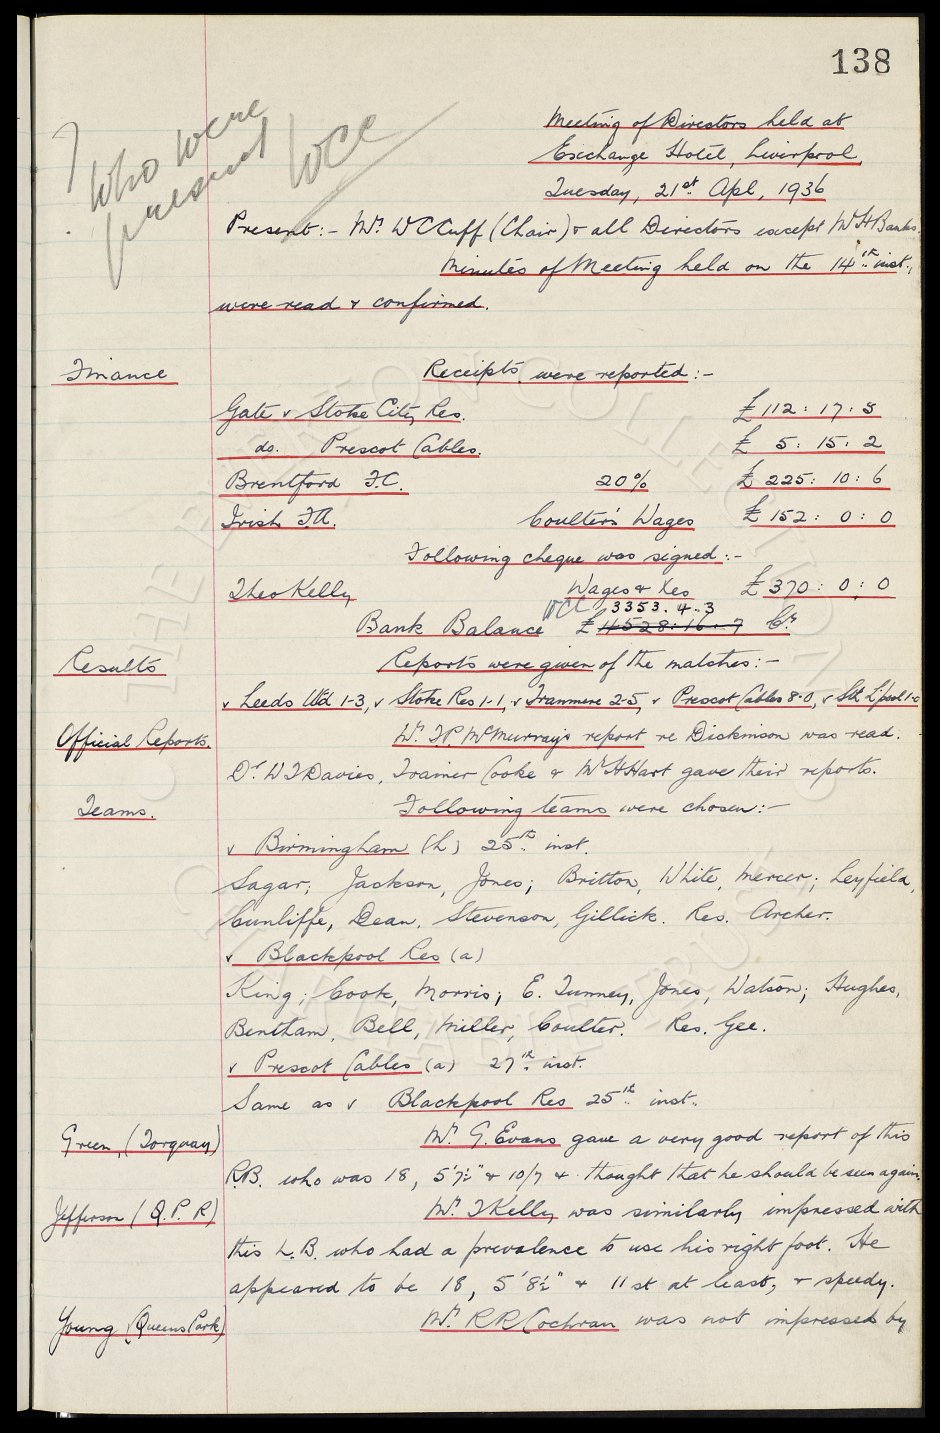 138
? Who were
present WCC
Meeting of Directors held at
Exchange Hotel, Liverpool,
Tuesday, 21st Apl, 1936
Present:- Mr. W C Cuff (Chair) & all Directors except Mr H Banks.
Minutes of Meeting held on the 14th inst.,
were read & confirmed.
Finance Receipts were reported:-
Gate v Stoke City Res. £112:17:3
do. Prescot Cables. £ 5:15:2
Brentford F.C. 20% £ 225:10:6
Irish F.A. Coulter's Wages £ 152:0:0
Following cheque was signed:-
Theo Kelly Wages & Xes £ 370:0:0
WCC 3353.4.3
Bank Balance £ 4528:16:7 Cr.
Results Reports were given of the matches:-
v Leeds Utd 1-3, v Stoke Res 1-1, v Tranmere 2-5, v Prescot Cables 8-0, v Sth L'pool 1-0
Official Reports. Mr. T.P. McMurray's report re Dickinson was read.
Dr W J Davies, Trainer Cooke & Mr H Hart gave their reports.
Teams. Following teams were chosen:-
v Birmingham (h) 25th inst.
Sagar; Jackson, Jones; Britton, White, Mercer; Leyfield,
Cunliffe, Dean, Stevenson, Gillick. Res. Archer.
v Blackpool Res (a)
King; Cook, Morris; E. Tunney, Jones, Watson; Hughes,
Bentham, Bell, Miller, Coulter. Res. Gee.
v Prescot Cables (a) 27th inst.
Same as v Blackpool Res 25th inst.
Green, (Torquay) Mr. G. Evans gave a very good report of this
R.B. who was 18, 5'7½" & 10/7 & thought that he should be seen again.
Jefferson (Q.P.R) Mr. T Kelly was similarly impressed with
this L.B. who had a prevalence to use his right foot. He
appeared to be 18, 5'8½" & 11 st at least, & speedy.
Young, (Queens Park) Mr. R R Cochran was not impressed by